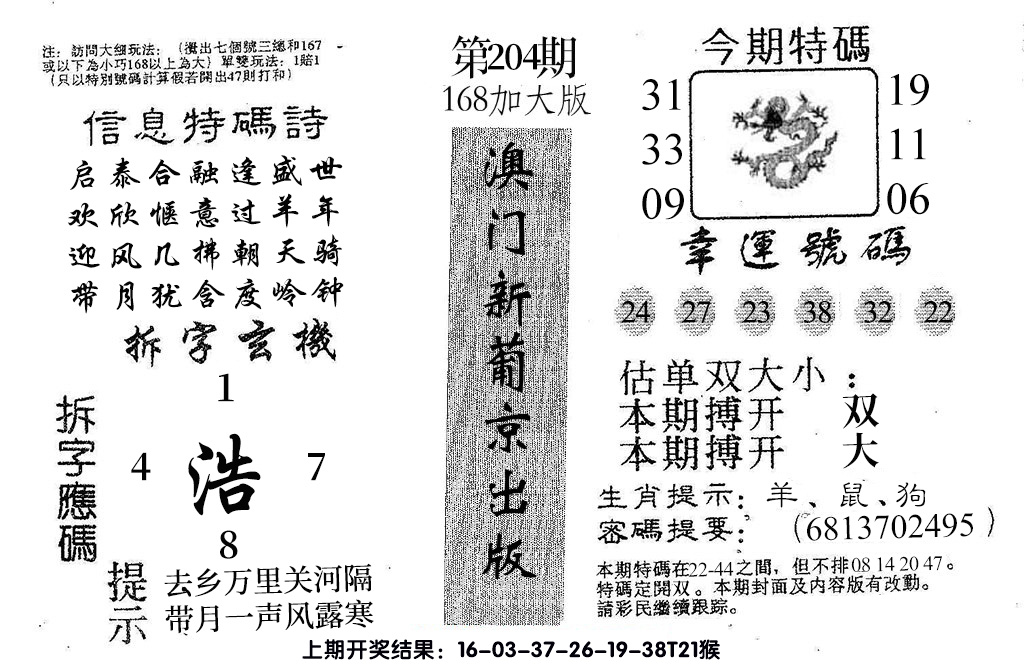 注：訪問大细玩法：（攪出七個號三總和167
或以下為小巧168以上為大）單雙玩法：1賠1
（只以特別號碼計算假若開出47則打和）
信息特碼詩
启泰合融逢盛世
欢欣惬意过羊年
迎风几拂朝天骑
带月犹含度岭钟
拆字玄機
拆字應碼
1
4 浩 7
8
提示
去乡万里关河隔
带月一声风露寒
第204期
168加大版
澳门新葡京出版
今期特碼
31 19
33 11
09 06
幸運號碼
24 27 23 38 32 22
估单双大小：
本期搏开 双
本期搏开 大
生肖提示：羊、鼠、狗
密碼提要：（6813702495）
本期特碼在22-44之間，但不排08 14 20 47。
特碼定開双。本期封面及内容版有改動。
請彩民繼續跟踪。
上期开奖结果：16-03-37-26-19-38T21猴